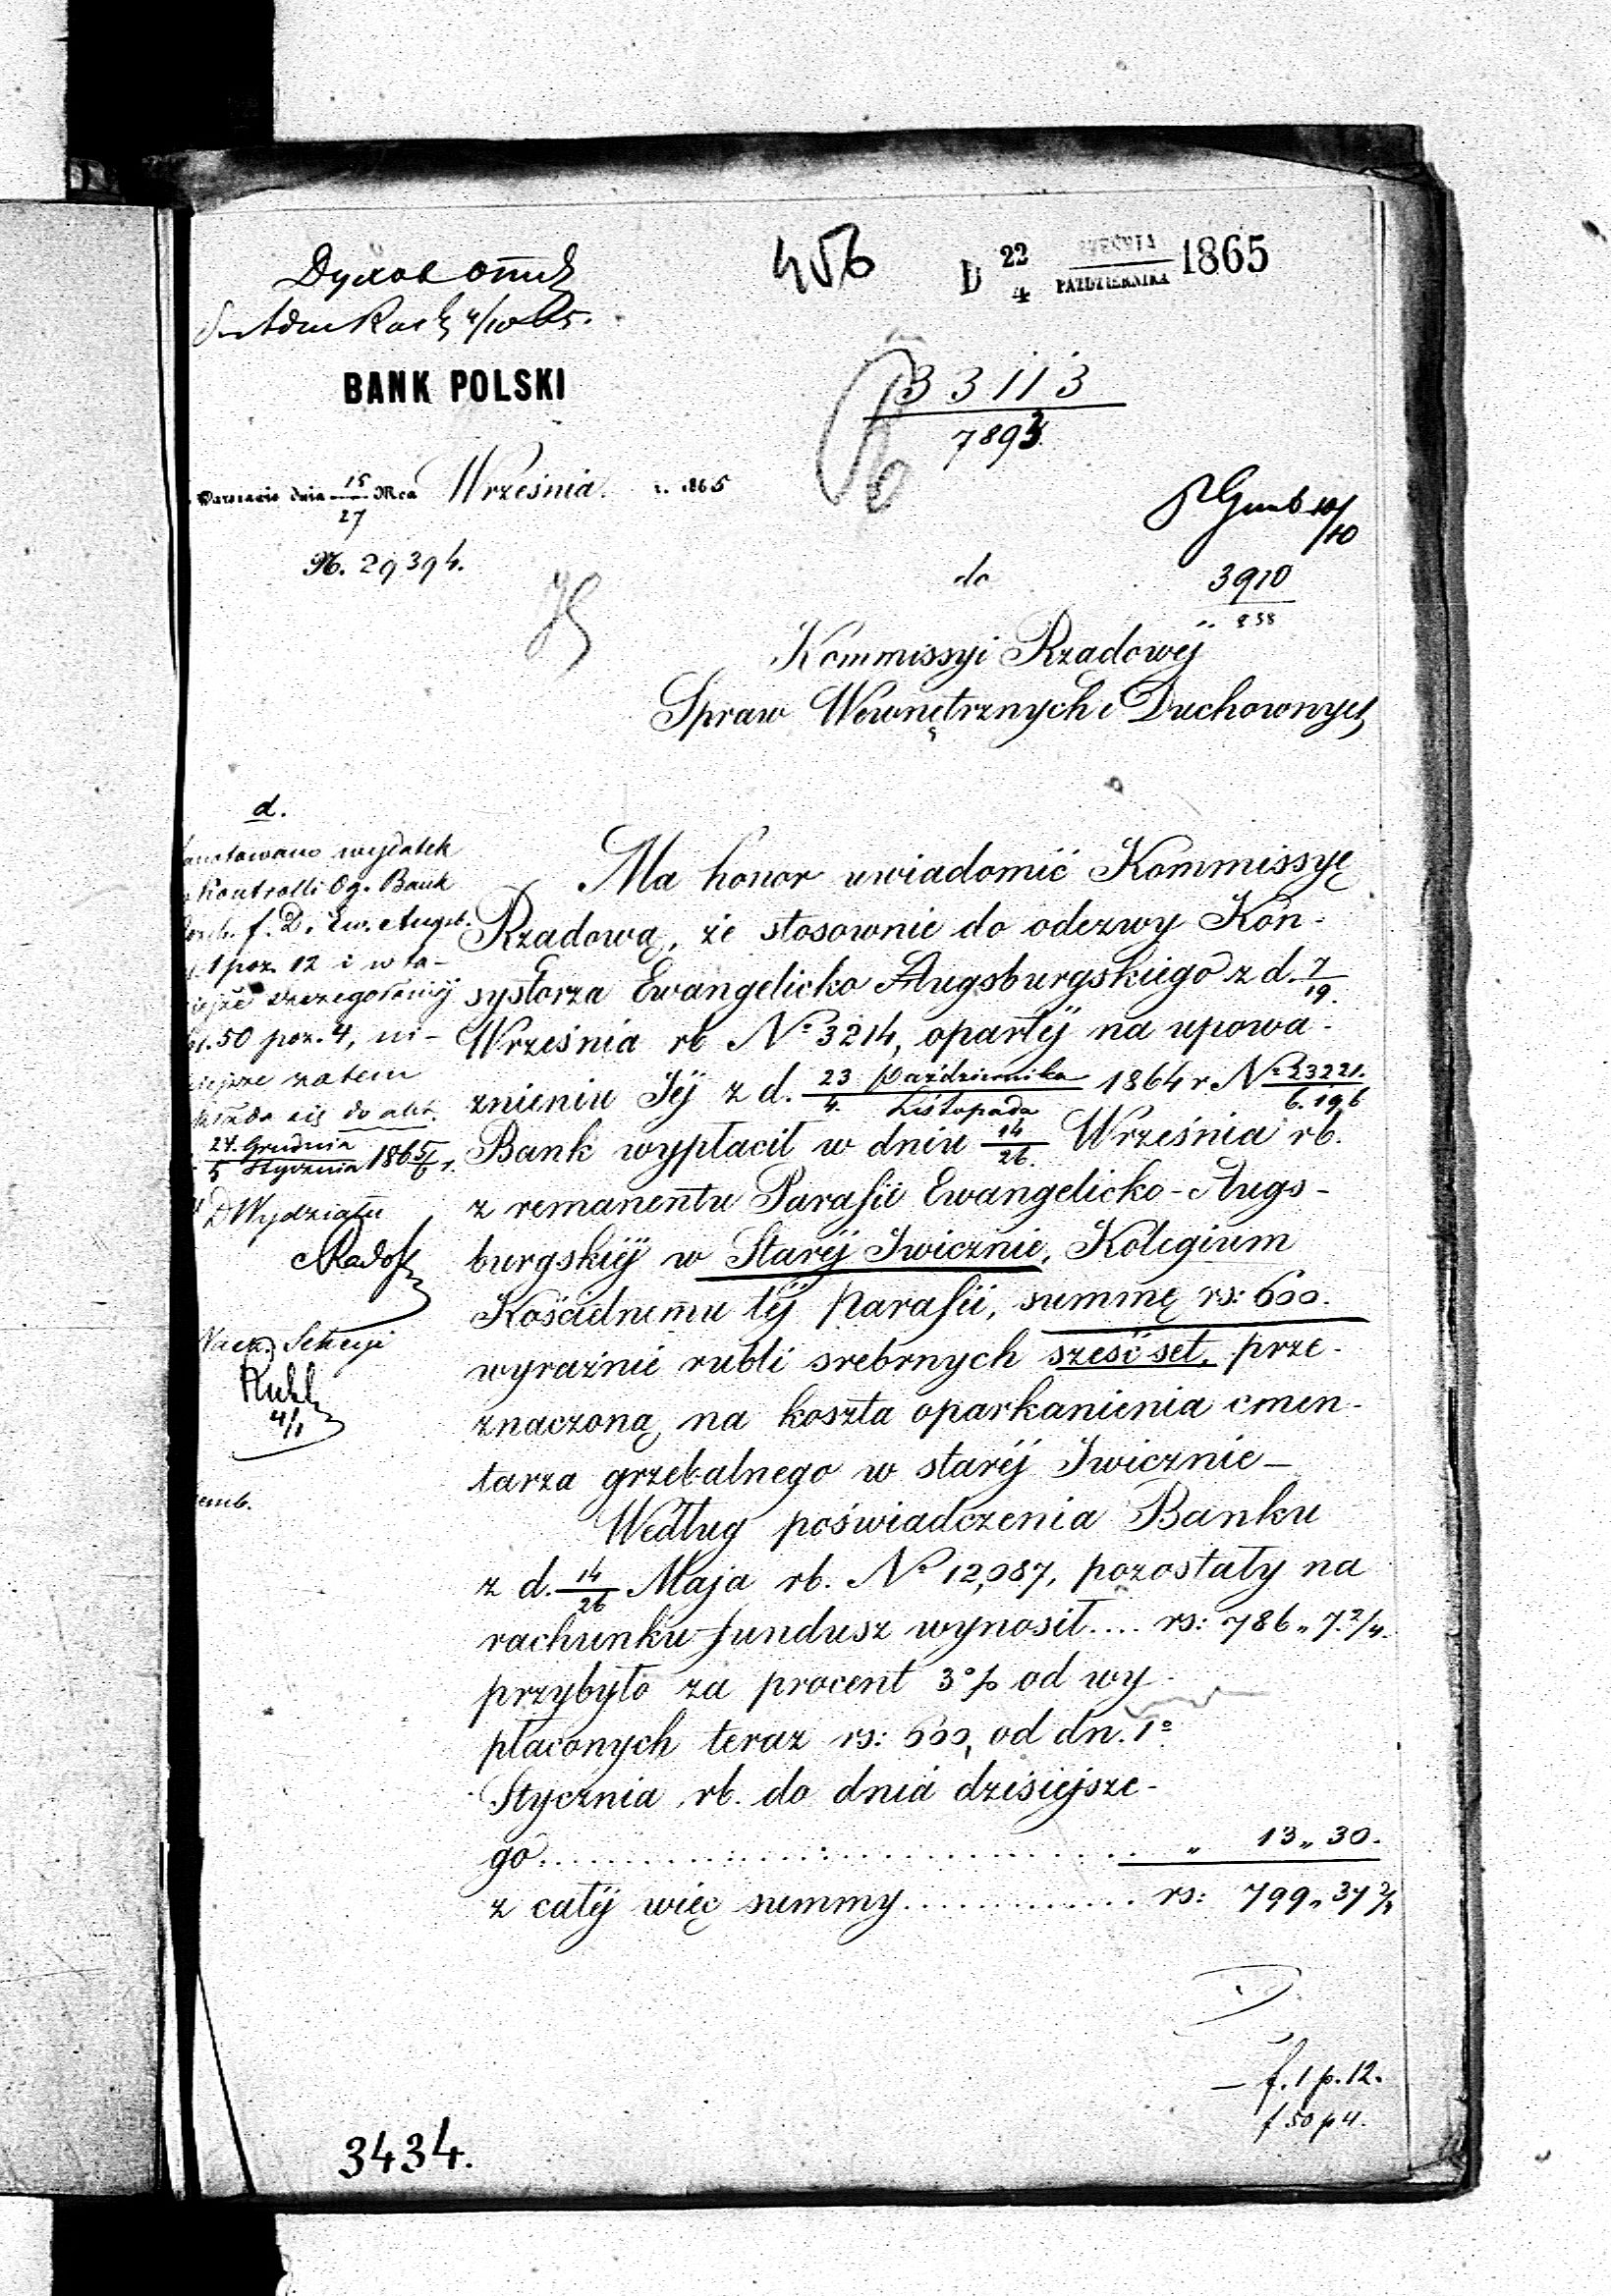 Духов отд
456
D 22/4 WRZEŚNIA/PAŹDZIERNIKA 1865
4/10 65.
BANK POLSKI
33113
7893
Warszawie dnia 15/27 Mca Września r. 1865
10/10
№. 29394.
do
3910
858
Kommissyi Rządowéj
Spraw Wewnętrznych i Duchownych
d.
anotowano wydatek
Kontrolli Og. Bank
f. D. Ew. Augsb.
1 poz. 12 i w ta-
szczegołowéj
50 poz. 4, ni-
niejsze zatem
składa się do akt.
24. Grudnia/5 Stycznia 1865/6 r.
D Wydziału
Nacz. Sekcyi
4/1
Ma honor uwiadomić Kommissyę
Rządową, że stosownie do odezwy Kon-
systorza Ewangelicko Augsburgskiego z d. 7/19.
Września rb № 3214, opartéj na upowa-
żnieniu Jéj z d. 23 Października/4. Listopada 1864 r № 23221./6.196
Bank wypłacił w dniu 14/26. Września rb.
z remanentu Parafii Ewangelicko-Augs-
burgskiéj w Staréj Iwicznie, Kolegium
Kościelnemu téj parafii, summę rs: 600.
wyraźnie rubli srebrnych sześćset, prze-
znaczoną na koszta oparkanienia cmen-
tarza grzebalnego w staréj Iwicznie-
Według poświadczenia Banku
z d. 14/26 Maja rb. № 12,087, pozostały na
rachunku fundusz wynosił.... rs: 786 „ 7.2/4.
przybyło za procent 3% od wy-
płaconych teraz rs: 600, od dn. 1º
Stycznia rb. do dnia dzisiejsze-
go............................ „ 13 „ 30.
z całéj więc summy............ rs: 799 „ 37 2/4
– f. 1 p. 12.
f 50 p 4.
3434.